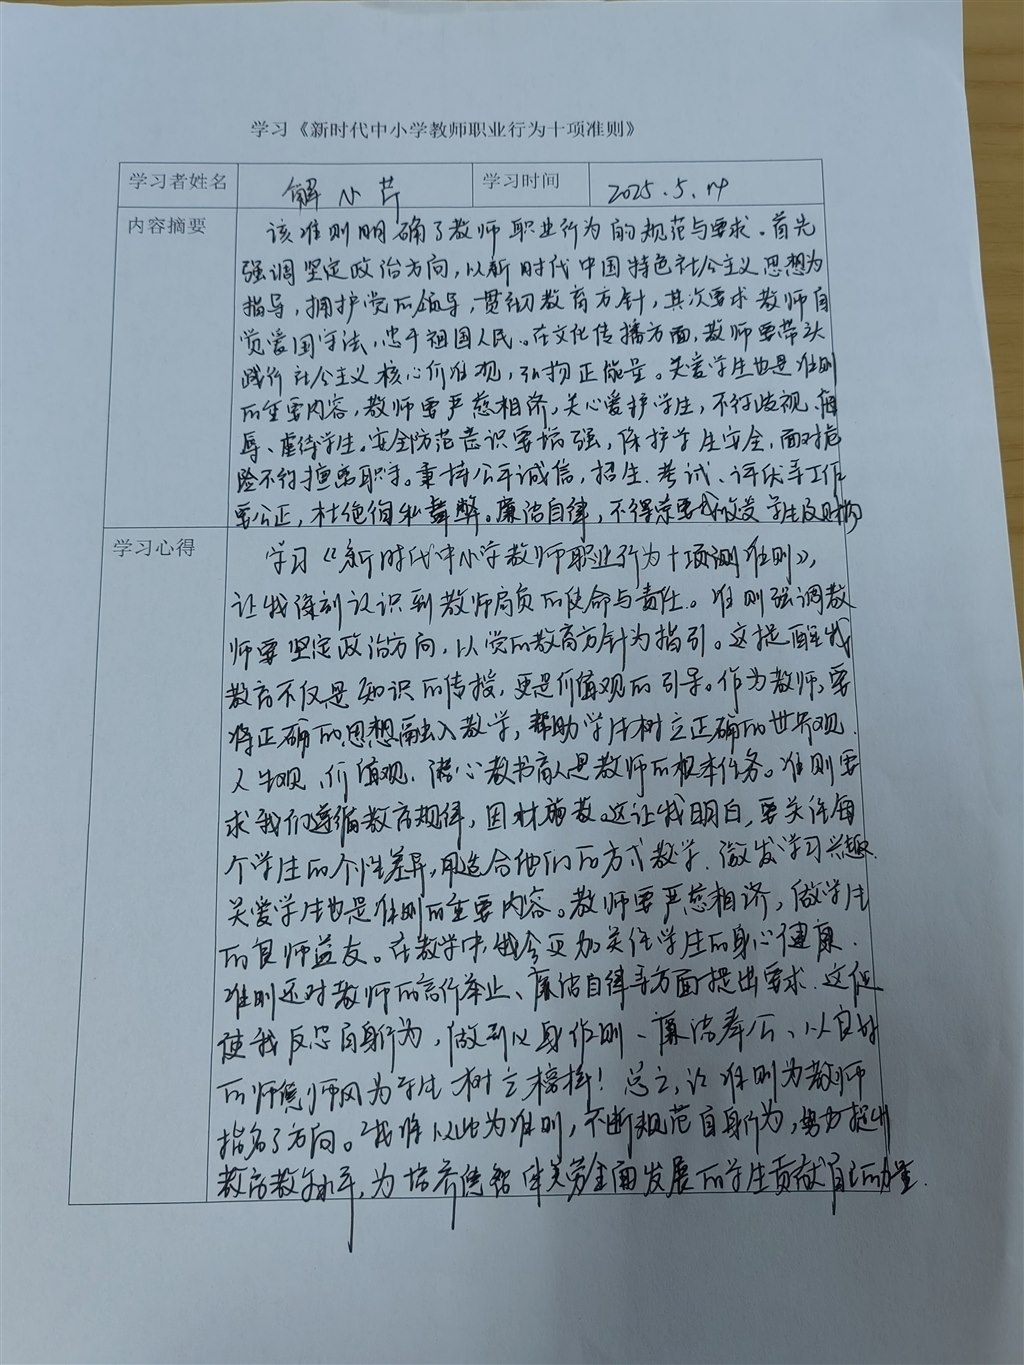 学习《新时代中小学教师职业行为十项准则》
学习者姓名 解小芹 学习时间 2025.5.14
内容摘要 该准则明确了教师职业行为的规范与要求。首先
强调坚定政治方向，以新时代中国特色社会主义思想为
指导，拥护党的领导，贯彻教育方针，其次要求教师自
觉爱国守法，忠于祖国人民。在文化传播方面，教师要带头
践行社会主义核心价准观，弘扬正能量。关爱学生也是准则
的重要内容，教师要严慈相济，关心爱护学生，不得歧视、侮
辱、虐待学生。安全防范意识要增强，保护学生安全，面对危
险不得擅离职守。秉持公平诚信，招生、考试、评优等工作
要公正，杜绝徇私舞弊。廉洁自律，不得索要或收受学生及财物
学习心得 学习《新时代中小学教师职业行为十项测准则》，
让我深刻认识到教师肩负的使命与责任。准则强调教
师要坚定政治方向，以党的教育方针为指引。这提醒我
教育不仅是知识的传授，更是价值观的引导。作为教师，要
将正确的思想融入教学，帮助学生树立正确的世界观、
人生观、价值观。潜心教书育人是教师的根本任务。准则要
求我们遵循教育规律，因材施教。这让我明白，要关注每
个学生的个性差异，用适合他们的方式教学，激发学习兴趣。
关爱学生也是准则的重要内容。教师要严慈相济，做学生
的良师益友。在教学中，我会更加关注学生的身心健康。
准则还对教师的言行举止、廉洁自律等方面提出要求，这促
使我反思自身行为，做到以身作则、廉洁奉公、以良好
的师德师风为学生树立榜样！总之，该准则为教师
指名了方向。我将以此为准则，不断规范自身行为，努力提升
教育教学水平，为培养德智体美劳全面发展的学生贡献自己的力量.